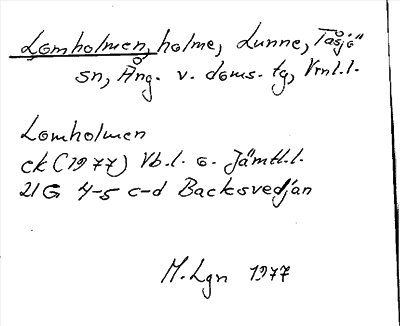 Lomholmen, holme, Lunne, Tåsjö
sn, Ång. v. doms. tg, Vrnl.l.
Lomholmen
ek (1977) Vb.l. o. Jämtl.l.
21G 4-5 c-d Backsvedjan
M. Lgn 1977